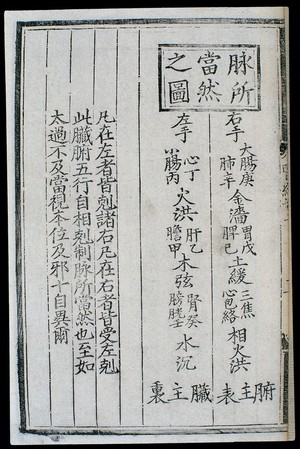 脉所
當然
之圖
右手 大腸庚 肺辛 金濇 胃戊 脾己 土緩 三焦 心包絡 相火洪
左手 心丁 小腸丙 火洪 肝乙 膽甲 木弦 腎癸 膀胱壬 水沉
腑主表
臟主裏
凡在左者皆剋諸右凡在右者皆受左剋
此臟腑五行自相剋制脉所當然也至如
太過不及當視本位及邪十自異爾